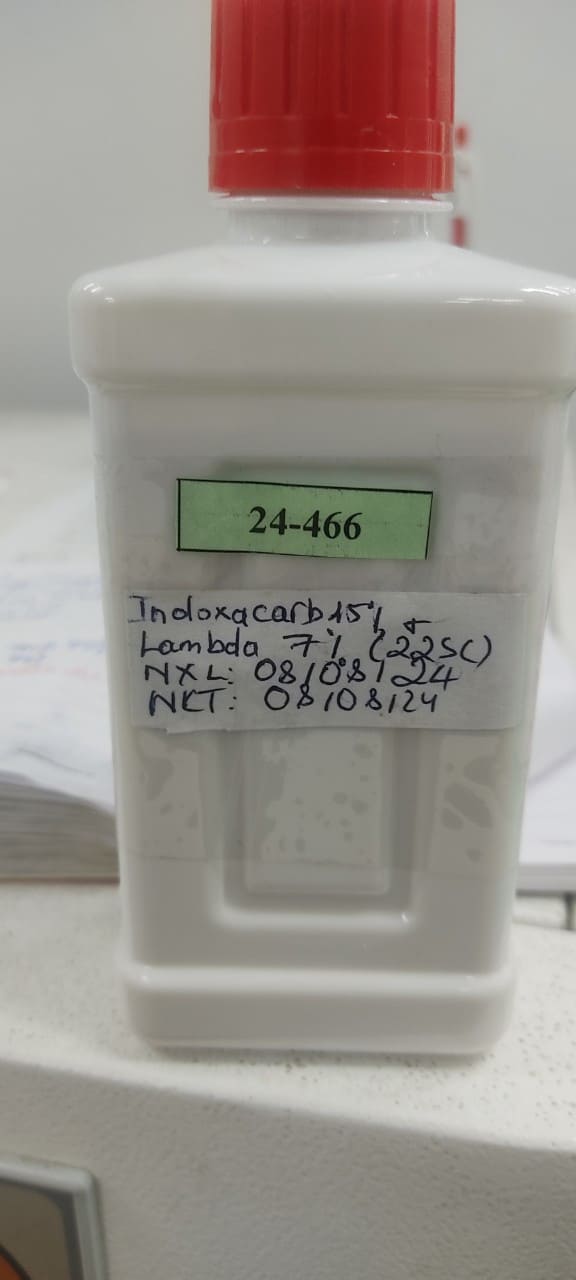 24-466
Indoxacarb 15% +
Lambda 7% (22SC)
NXL: 08/08/24
NKT: 08/08/24